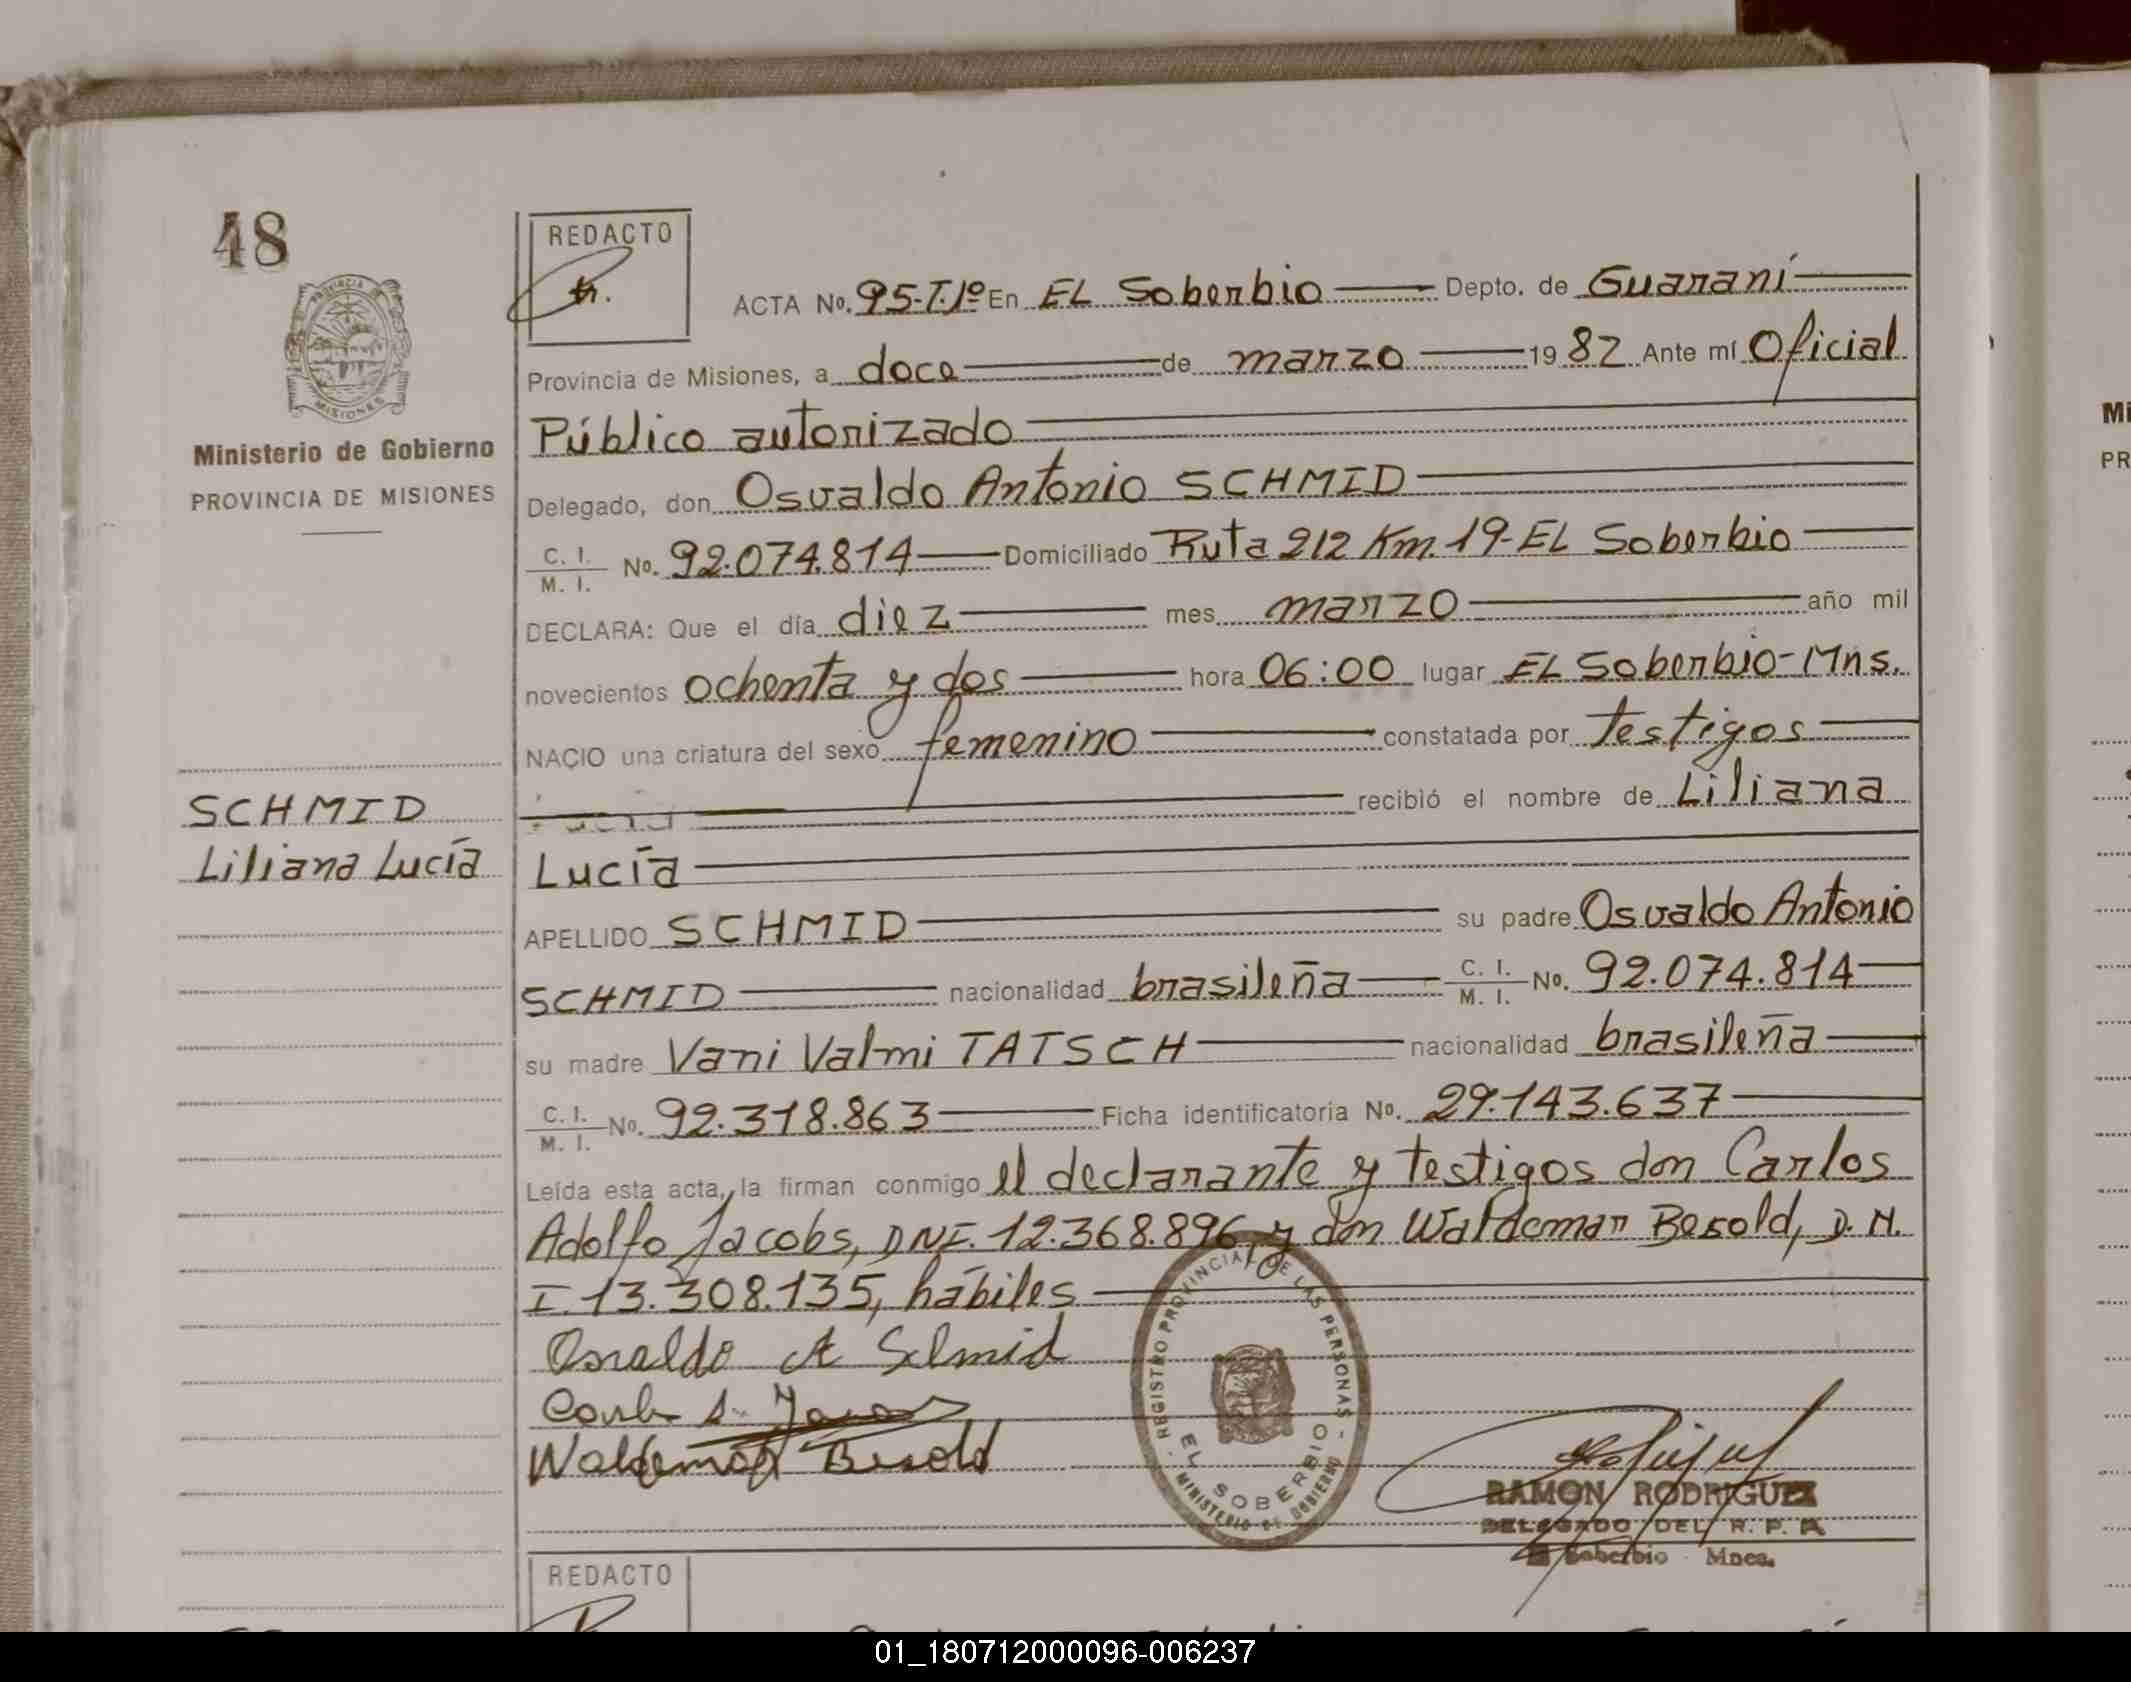 48
REDACTO
ACTA Nº. 95-T.1º En EL Soberbio Depto. de Guaraní
Provincia de Misiones, a doce de marzo 1982 Ante mí Oficial
Público autorizado
Delegado, don Osvaldo Antonio SCHMID
C. I. / M. I. Nº. 92.074.814 Domiciliado Ruta 212 Km. 19-EL Soberbio
DECLARA: Que el día diez mes marzo año mil
novecientos ochenta y dos hora 06:00 lugar EL Soberbio-Mns.
NACIO una criatura del sexo femenino constatada por testigos
recibió el nombre de Liliana
Lucía
APELLIDO SCHMID su padre Osvaldo Antonio
SCHMID nacionalidad brasileña C. I. / M. I. Nº. 92.074.814
su madre Vani Valmi TATSCH nacionalidad brasileña
C. I. / M. I. Nº. 92.318.863 Ficha identificatoria Nº. 29.143.637
Leída esta acta, la firman conmigo el declarante y testigos don Carlos
Adolfo Jacobs, DNI. 12.368.896 y don Waldemar Besold, D.N.
I. 13.308.135, hábiles
Osvaldo A Schmid
Waldemar Besold
PROVINCIA DE MISIONES
Ministerio de Gobierno
PROVINCIA DE MISIONES
SCHMID
Liliana Lucía
REGISTRO PROVINCIAL DE LAS PERSONAS
EL SOBERBIO
MINISTERIO DE GOBIERNO
RAMON RODRIGUEZ
DELEGADO DEL R. P. P.
El Soberbio - Mnes.
REDACTO
Mi
PR
01_180712000096-006237